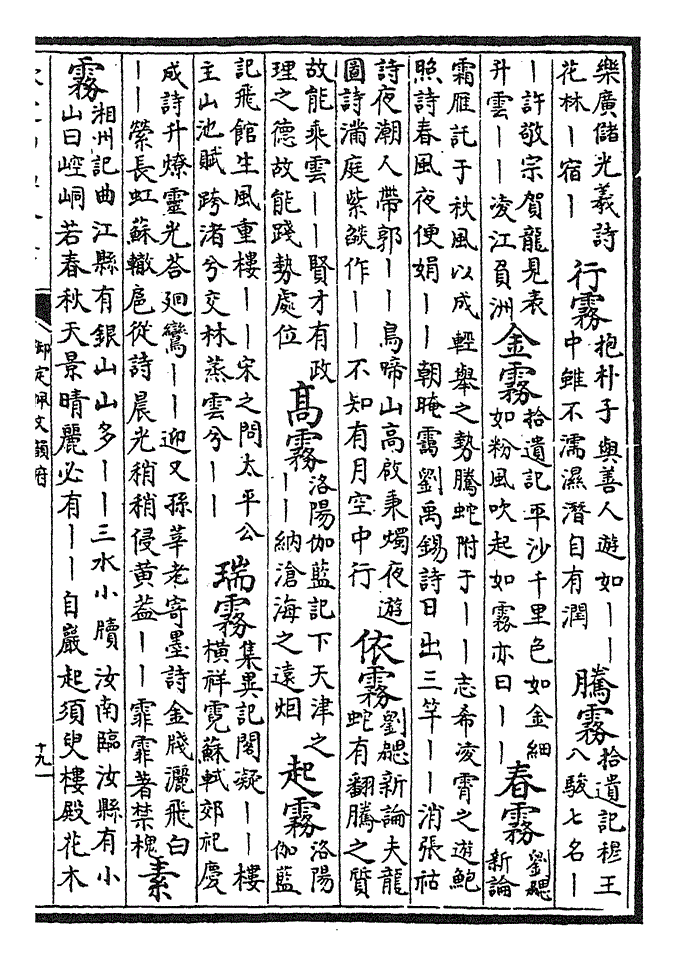 樂廣儲光羲詩
花林｜宿｜
行霧
抱朴子與善人遊如｜｜
中雖不濡濕潛自有潤
騰霧
拾遺記穆王
八駿七名｜
｜許敬宗賀龍見表
升雲｜｜凌江負洲
金霧
拾遺記平沙千里色如金細
如粉風吹起如霧亦曰｜｜
春霧
劉勰
新論
霜雁託于秋風以成輕舉之勢騰蛇附于｜｜志希凌霄之遊鮑
照詩春風夜便娟｜｜朝晻靄劉禹錫詩日出三竿｜｜消張祜
詩夜潮人帶郭｜｜鳥啼山高啟秉燭夜遊
圖詩滿庭紫燄作｜｜不知有月空中行
依霧
劉勰新論夫龍
蛇有翻騰之質
故能乘雲｜｜賢才有政
理之德故能踐勢處位
高霧
洛陽伽藍記下天津之
｜｜納滄海之遠烟
起霧
洛陽
伽藍
記飛館生風重樓｜｜宋之問太平公
主山池賦跨渚兮交林蒸雲兮｜｜
瑞霧
集異記閣凝｜｜樓
橫祥霓蘇軾郊祀慶
成詩升燎靈光荅廻鸞｜｜迎又孫莘老寄墨詩金牋灑飛白
｜｜縈長虹蘇轍扈從詩晨光稍稍侵黃葢｜｜霏霏著禁槐
素
霧
湘州記曲江縣有銀山山多｜｜三水小牘汝南臨汝縣有小
山曰崆峒若春秋天景晴麗必有｜｜自巖起須臾樓殿花木
御定佩文韻府
十九